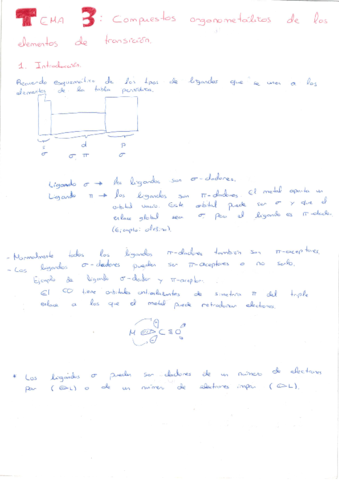 TEMA 3: Compuestos organometálicos de los
elementos de transición.
1. Introducción.
Recuerdo esquemático de los tipos de ligandos que se unen a los
elementos de la tabla periódica.
s d p
σ σ π σ
Ligando σ → los ligandos son σ-dadores.
Ligando π → los ligandos son π-dadores. El metal aporta un
orbital vacío. Este orbital puede ser σ y que el
enlace global sea σ pero el ligando es π-dador.
(Ejemplo:
- Normalmente todos los ligandos π-dadores también son π-aceptores.
- Los ligandos σ-dadores pueden ser π-aceptores o no serlo.
Ejemplo de ligando σ-dador y π-aceptor.
El CO tiene orbitales antienlazantes de simetría π del triple
enlace a los que el metal puede retrodonar electrones.
M C≡O
* Los ligandos σ pueden ser dadores de un número de electrones
par ( L) o de un número de electrones impar ( L).